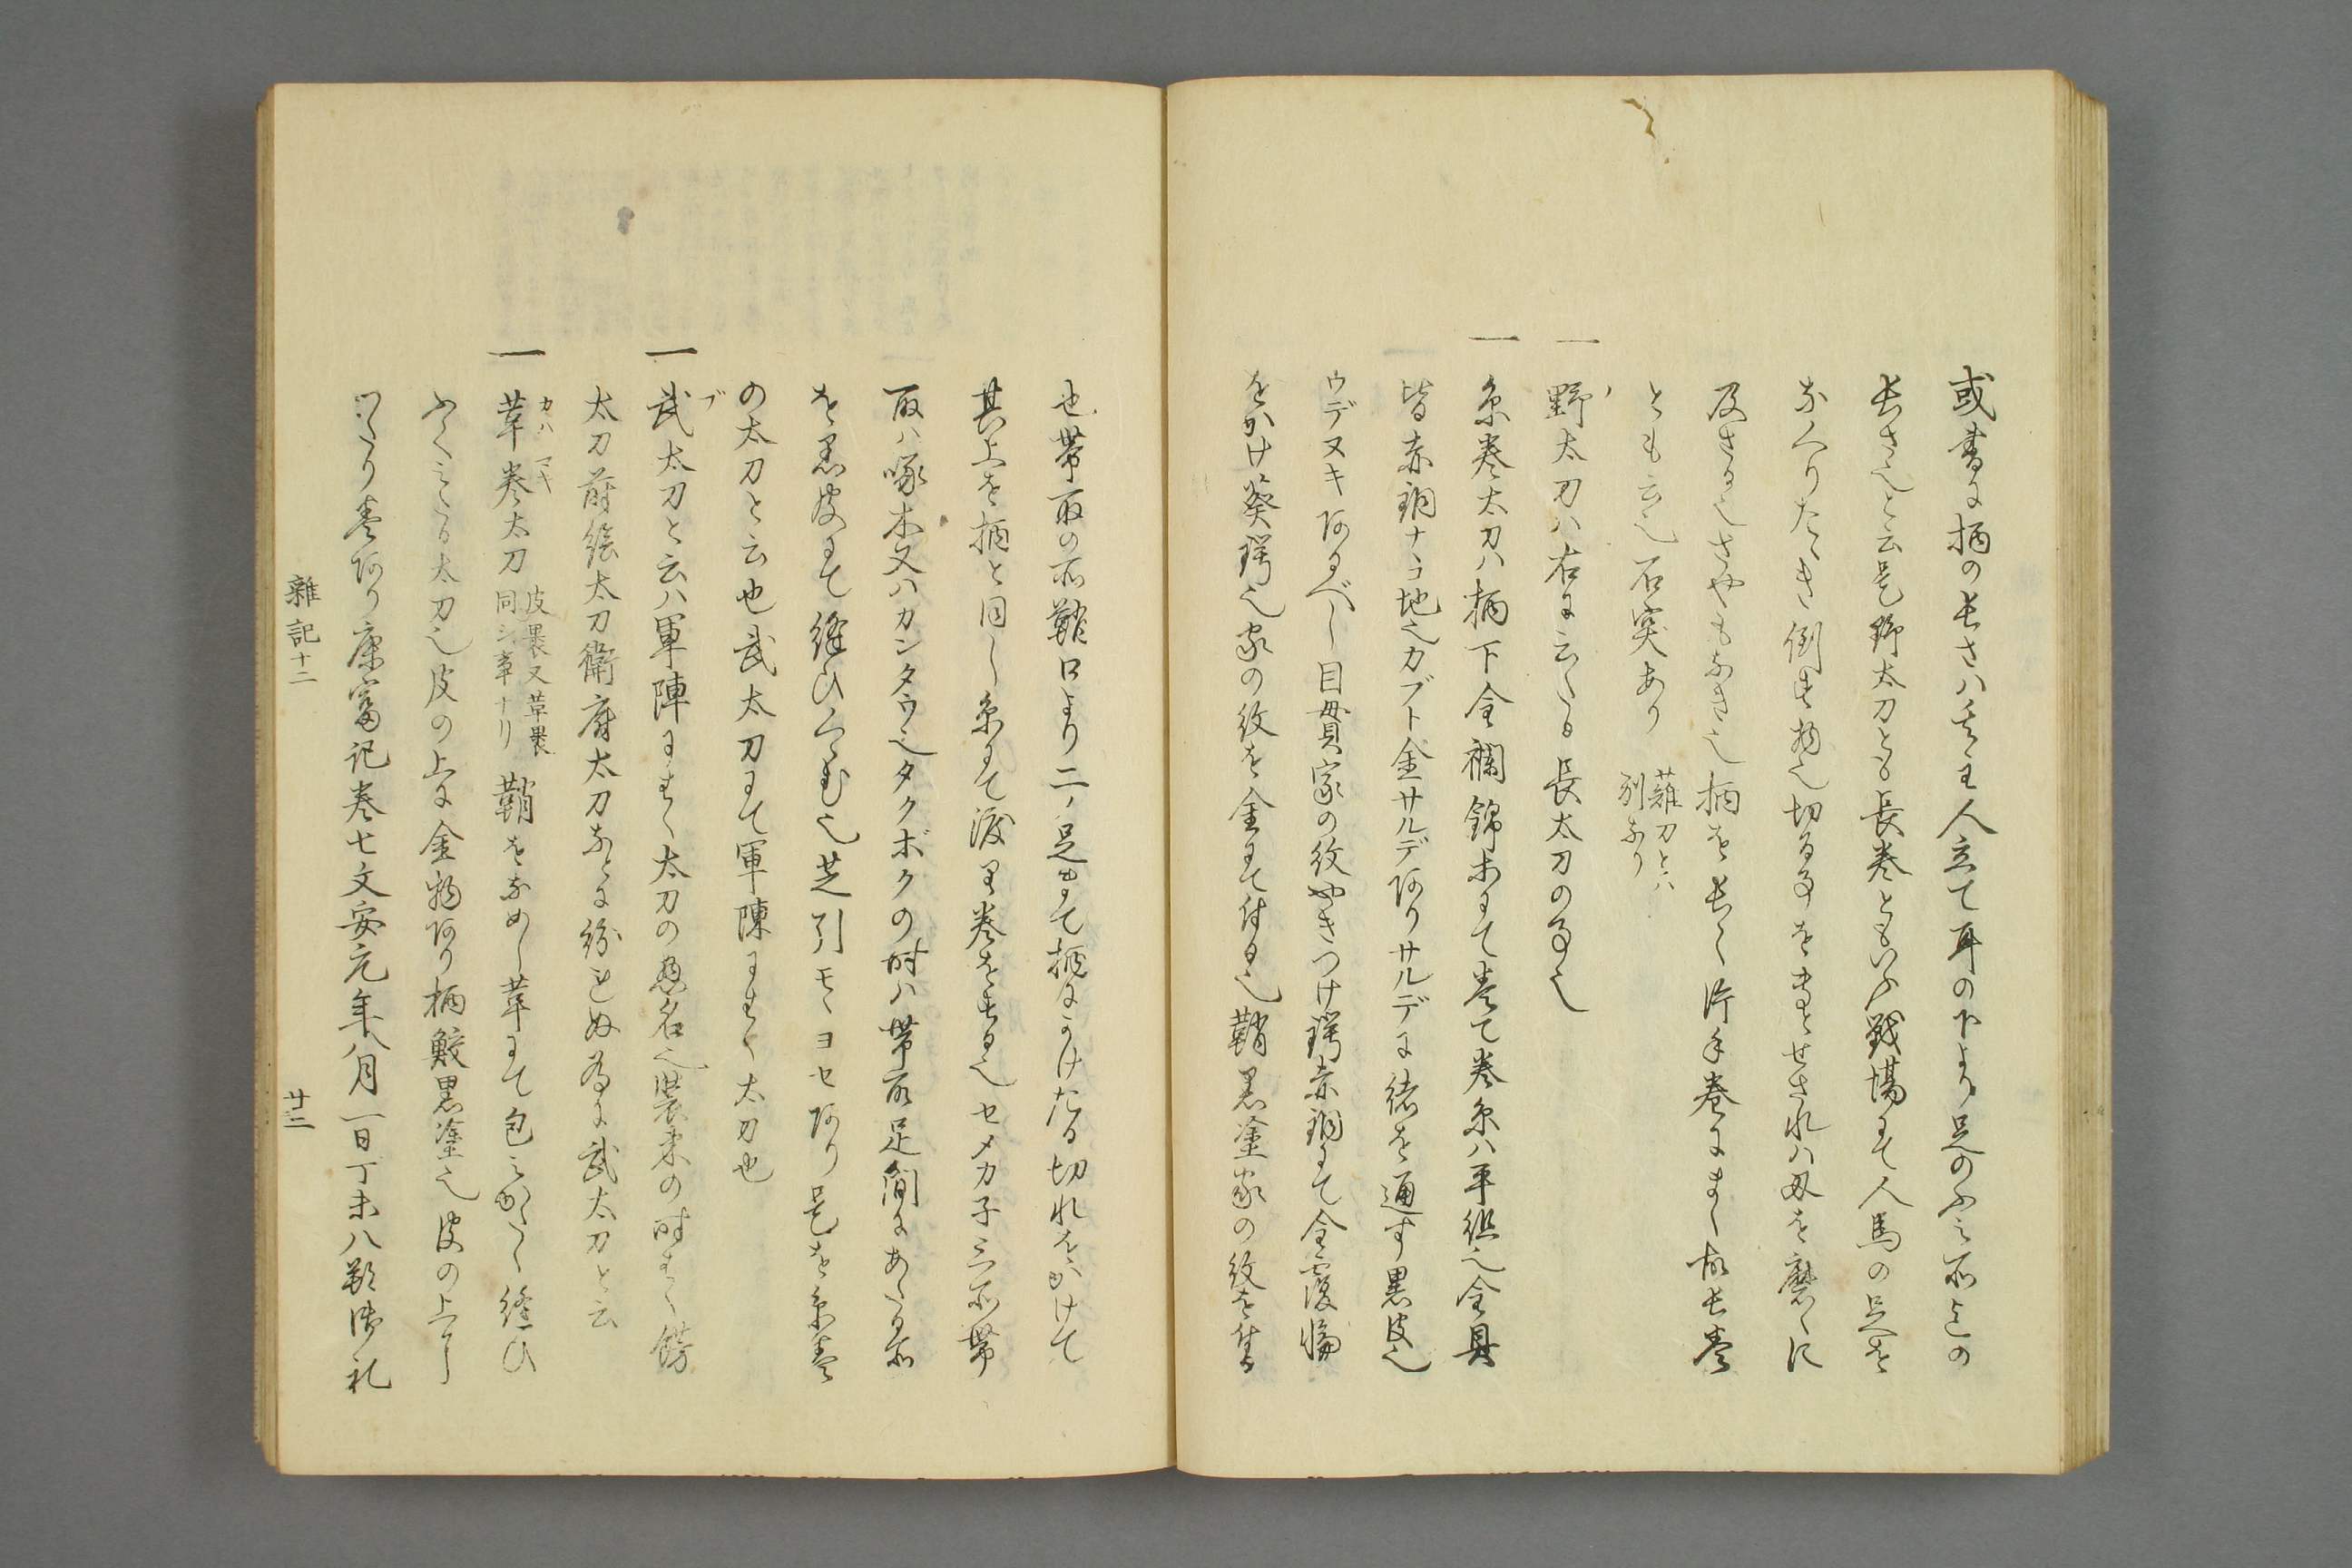 或書に柄の長さハ其主人立て耳の下より足のふみ所迄の
長さ也と云是野太刀とも長巻ともいふ戦場にて人馬の足を
なくりたゝき倒す物也切る事を專とせされハ刃を磨くに
及さる也さやもなき也柄を長く片手巻にまく故長巻
とも云也石突あり 薙刀とハ別なり
一 野太刀ハ右に云ふる長太刀の事也
一 糸巻太刀ハ柄下金襴錦木にて巻て巻糸ハ平組也金具
皆赤銅ナヽコ地也カブト金サルデ有りサルデに緒を通す黒皮也
ウデヌキ有るべし目貫家の紋やきつけ鍔赤銅にて金覆輪
をかけ葵鍔也家の紋を金にて付る也鞘黒塗家の紋を付る
也帯取の所鞘口より二ノ足まて柄にかけたる切れをかけて
其上を柄と同し糸にて渡り巻をする也セメカ子三所帯
取ハ啄木又ハカンタウ也タクボクの時ハ帯取足間にあたる所
を黒皮にて縫ひくゝむ也芝引モヽヨセ有り是を糸巻
の太刀と云也武太刀にて軍陣にはく太刀也
一 武太刀と云ハ軍陣にはく太刀の惣名也装束の時はく餝
太刀蒔絵太刀衛府太刀なとに紛れぬ為に武太刀と云
一 革巻太刀 皮裹又革裹同シ事ナリ 鞘をなめし革にて包みかたく縫ひ
ふくみたる太刀也皮の上に金物有り柄鮫黒塗也皮の上に
うるしぬり巻有り康富記巻七文安元年八月一日丁未八朔御礼
雑記十二 廿二